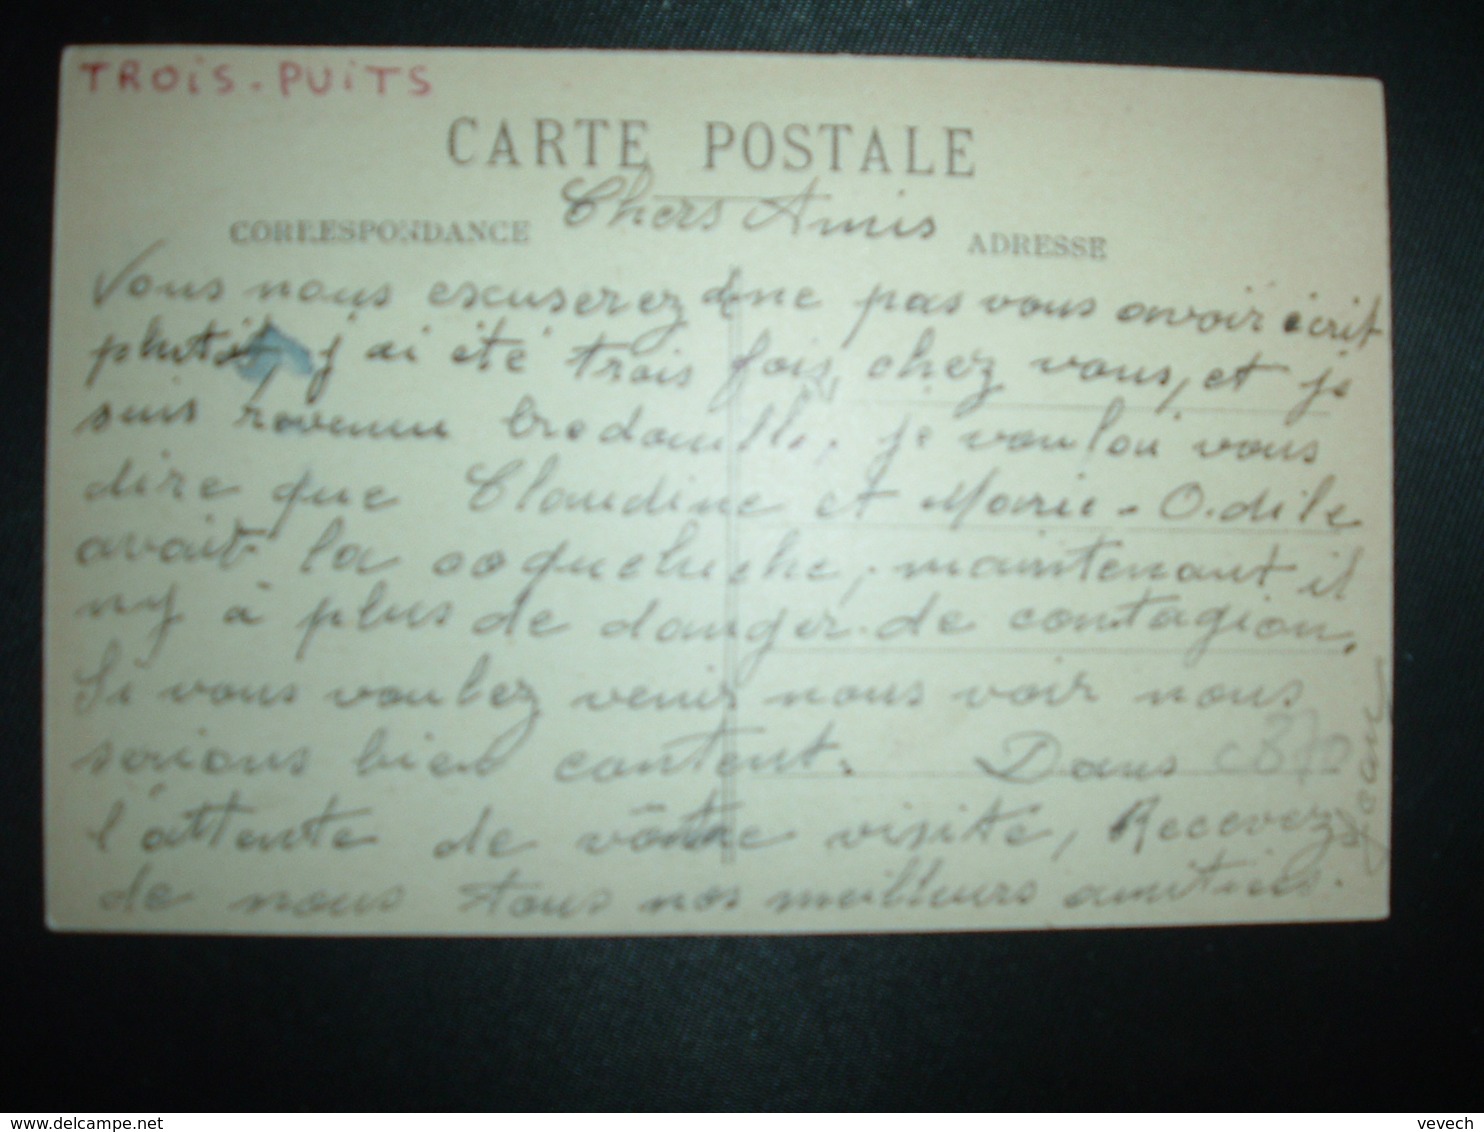 TROIS-PUITS
CARTE POSTALE
Chers Amis
CORRESPONDANCE
ADRESSE
Vous nous escuserez dene pas vous avoir écrit
plutôt, j ai été trois fois chez vous, et je
suis revenu bredouille, je voulou vous
dire que Claudine et Marie-Odile
avait la coqueluche, maintenant il
ny à plus de danger de contagion.
Si vous voulez venir nous voir nous
serions bien content. Dans
l'attente de vôtre visite, Recevez
de nous tous nos meilleurs amitiés.
Jean
vevech